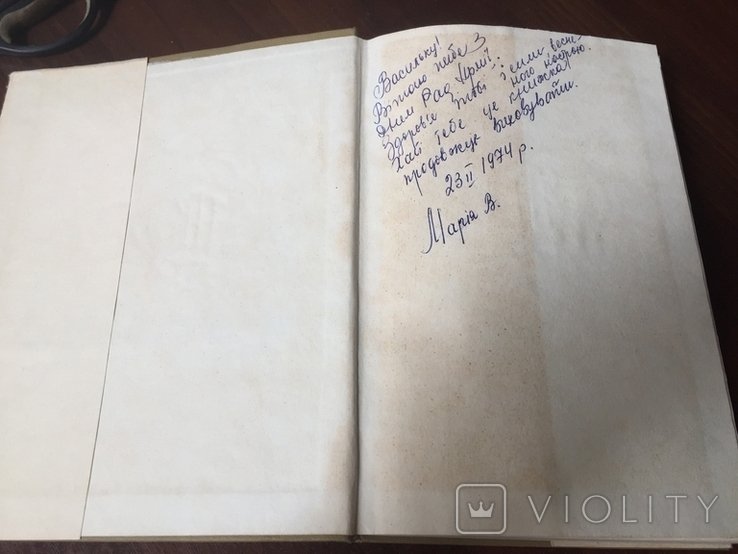 Васильку!
Вітаю тебе З
Днем Рад. Армії.
Здоров'я тобі і сили весня-
ного настрою.
Хай тебе це книжка
продовжує виховувати.
23 II 1974 р.
Марія В.
VIOLITY